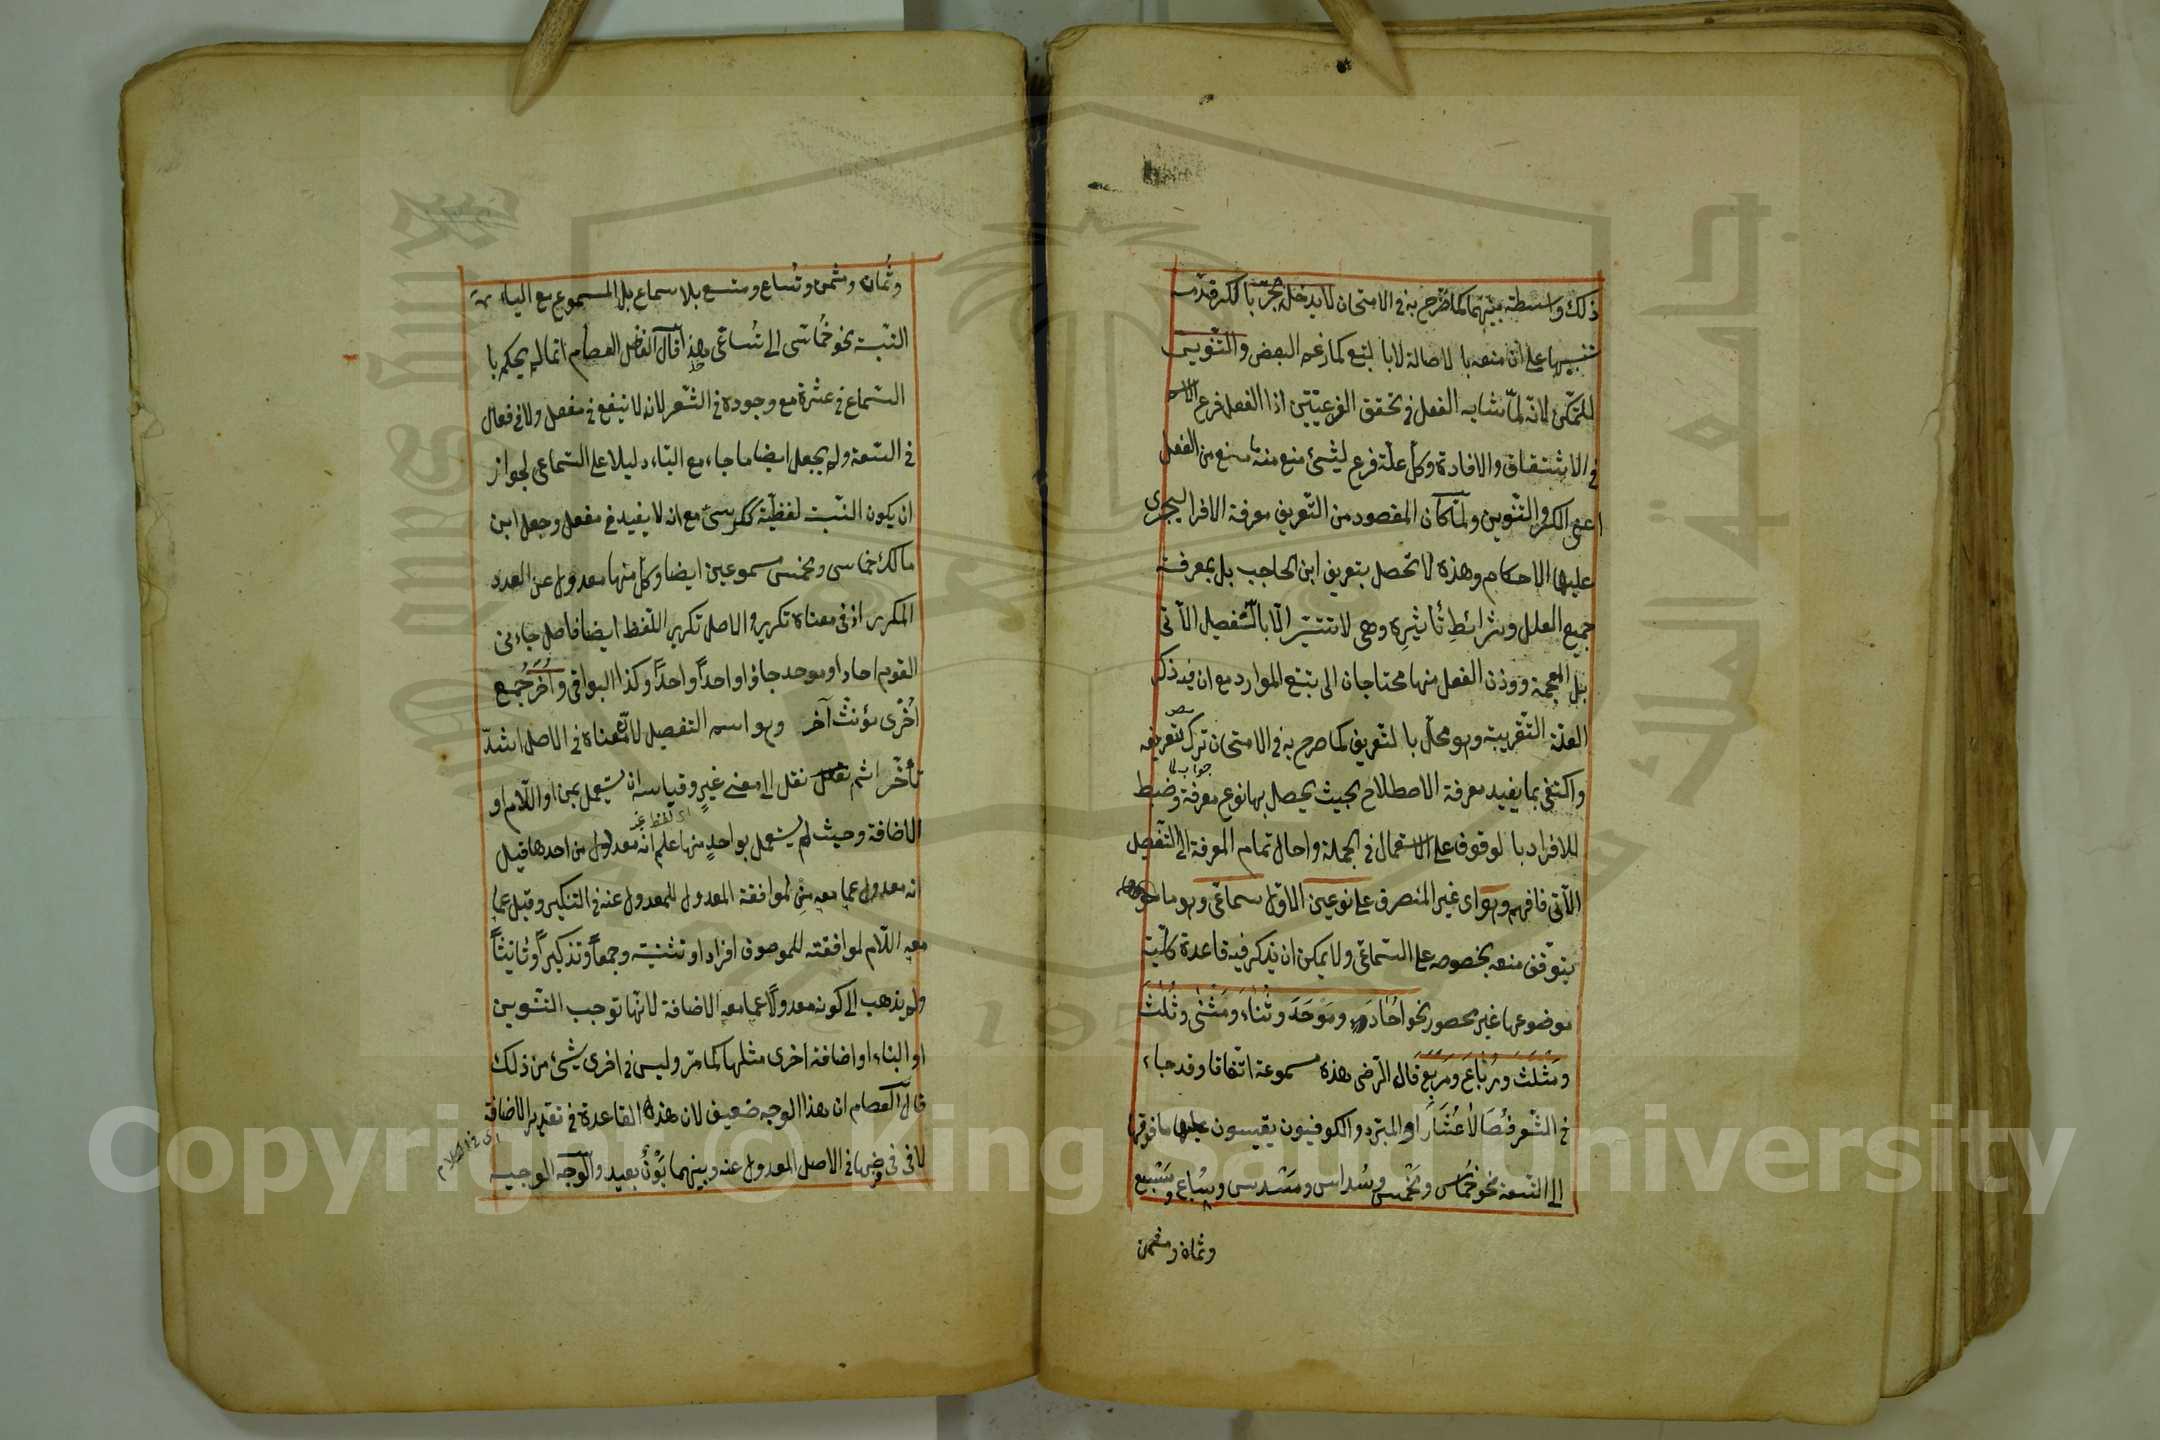 ذلك واسطة بينهما كما صرح به في الامتحان لا يدخله الجر بالكسر قدمه
تنبيها على ان منعه بالاصالة لا بالتبع كما زعم البعض والتنوين
للتمكن لانه لما شابه الفعل في تحقق الفرعيتين اذا الفعل فرع الاسم
في الاشتقاق والافادة وكل علة فرع لشئ منع منه ما منع من الفعل
اعنى الكسر والتنوين ولما كان المقصود من التعريف معرفة الافراد ليجرى
عليها الاحكام وهذه لا تحصل بتعريف ابن الحاجب بل بمعرفة
جميع العلل وشرائط تأثيره وهى لا تتيسر الا بالتفصيل الآتى
بل العجمة ووزن الفعل منها محتاجان الى تتبع الموارد مع ان فيه ذكر
العلة التقريبة وهو مخل بالتعريف كما صرح به في الامتحان ترك تعريفه
جواب لما
واكتفى بما يفيد معرفة الاصطلاح بحيث يحصل بها نوع معرفة وضبط
للافراد بالوقوف على الاستعمال في الجملة واحال تمام المعرفة الى التفصيل
الآتى فافهم وهو اى غير المنصرف على نوعين الاول سماعى وهو ما
يتوقف منعه بخصوصه على السماعى ولا يمكن ان يذكر فيه قاعدة كلية
موضوعها غير محصور نحو اُحَادَ ومَوْحَدَ وثُنَاءَ ومَثْنٰى وثُلٰثَ
ومَثْلَثَ ورُبَاعَ ومَرْبَعَ قال الرضى هذه مسموعة اتفاقا وقد جاء
في الشعر خصالا عُشَارًا والمبرد والكوفيون يقيسون عليها ما فوقها
الى التسعة نحو خُمَاس ومَخْمَس وسُداس ومَسْدس وسُباع ومَسْبَع
وثمان ومثمن
وثُمان ومثمن وتُساع ومتسع بلا سماع بل المسموع مع الياء
النسبة نحو خُماسى الى تُساعى هذا قال الفاضل العصام انما لم يحكم با
السماع في عشرة مع وجوده في الشعر لانه لا ينفع في مفعل ولا في فعال
في السعة ولم يجعل ايضا ما جاء مع الياء دليلا على السماعى لجواز
ان يكون النسبة لفظية ككرسى مع انه لا يفيد في مفعل وجعل ابن
مالك خماسى ومخمس مسموعين ايضا وكل منها معدول عن العدد
المكرر اذ في معناه تكرير والاصل تكرير اللفظ ايضا فاصل جاءنى
القوم احاد او موحد جاؤا واحدًا واحدًا وكذا البواقى وأُخَرَ جمع
اُخْرى مؤنث آخر وهو اسم التفضيل لان معناه في الاصل اشد
تأخرا ثم نقل الى معنى غير وقياسه ان يستعمل بمن او اللام او
اى لفظ غير
الاضافة وحيث لم يستعمل بواحدٍ منها علم انه معدول من احدها قيل
انه معدول عما معه من لموافقة المعدول للمعدول عنه في التنكير وقيل عما
معه اللام لموافقته للموصوف افرادا وتثنية وجمعاً وتذكيراً وتأنيثاً
ولم يذهب الى كونه معدولًا عما معه الاضافة لانها توجب التنوين
او البناء او اضافة اخرى مثلها كما مر وليس في اخرى شئ من ذلك
قال العصام ان هذا الوجه ضعيف لان هذه القاعدة في تقدير الاضافة
اى في الكلام
لا في فرضها في الاصل المعدول عنه وبينهما بَوْنٌ بعيد والوجه الوجيه